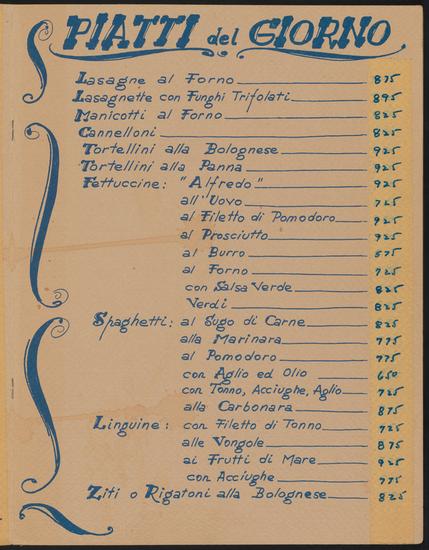 PIATTI del GIORNO
Lasagne al Forno 875
Lasagnette con Funghi Trifolati 895
Manicotti al Forno 825
Cannelloni 825
Tortellini alla Bolognese 925
Tortellini alla Panna 925
Fettuccine: "Alfredo" 925
all'Uovo 725
al Filetto di Pomodoro 925
al Prosciutto 925
al Burro 575
al Forno 725
con Salsa Verde 825
Verdi 825
Spaghetti: al Sugo di Carne 825
alla Marinara 775
al Pomodoro 775
con Aglio ed Olio 650
con Tonno, Acciughe, Aglio 725
alla Carbonara 875
Linguine: con Filetto di Tonno 725
alle Vongole 875
ai Frutti di Mare 925
con Acciughe 775
Ziti o Rigatoni alla Bolognese 825